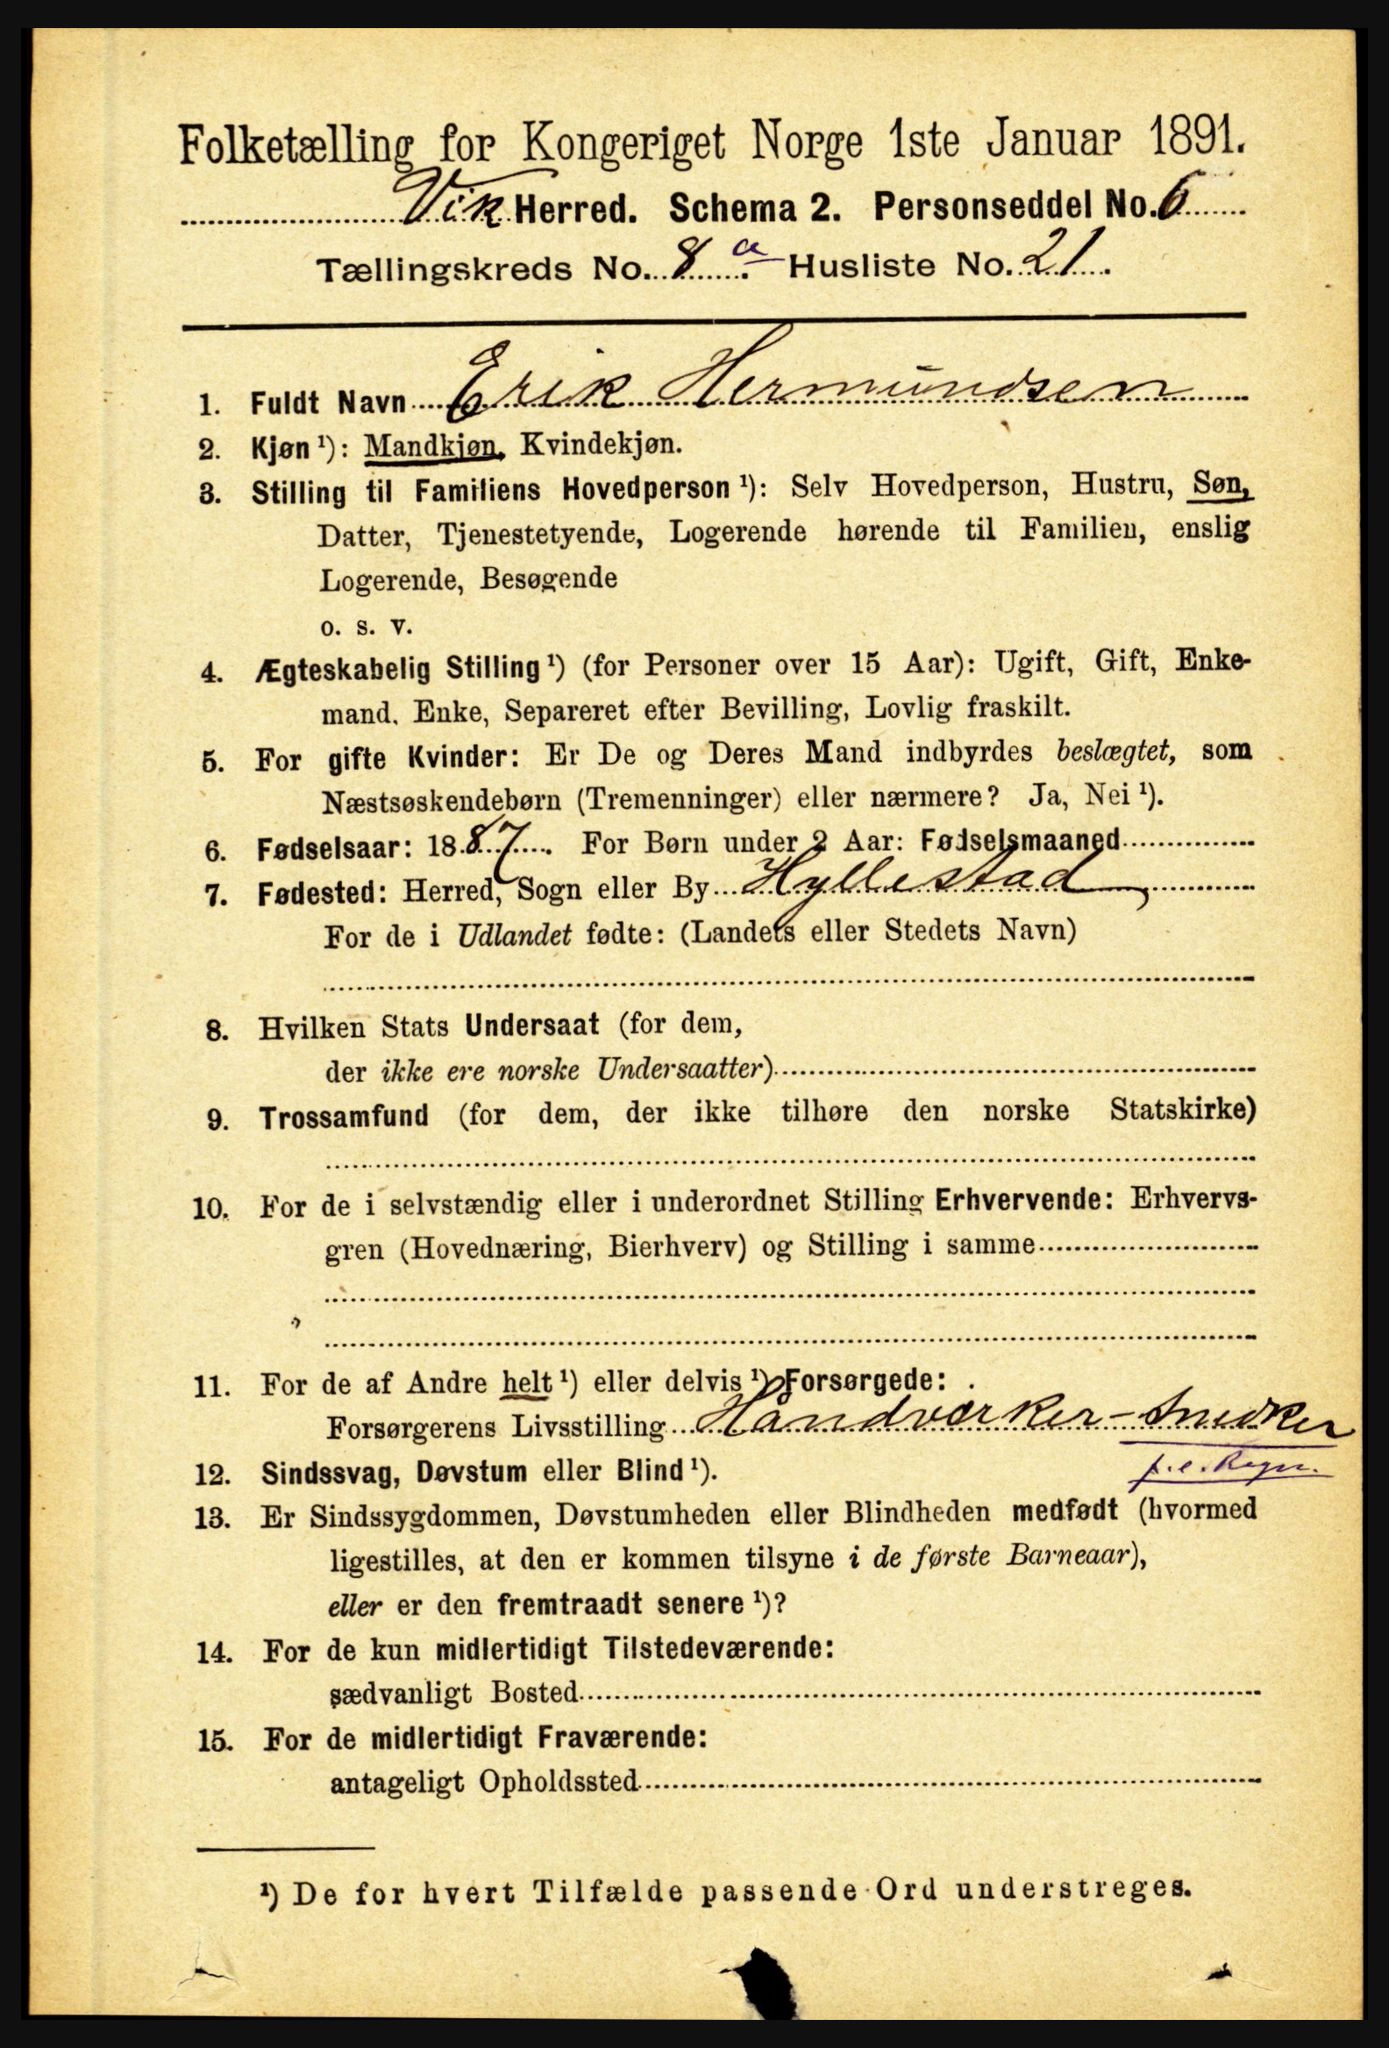 Folketælling for Kongeriget Norge 1ste Januar 1891.
Vik Herred. Schema 2. Personseddel No. 6
Tællingskreds No. 8 a. Husliste No. 21.
1. Fuldt Navn Erik Hermundsen
2. Kjøn ¹): Mandkjøn, Kvindekjøn.
3. Stilling til Familiens Hovedperson ¹): Selv Hovedperson, Hustru, Søn,
Datter, Tjenestetyende, Logerende hørende til Familien, enslig
Logerende, Besøgende
o. s. v.
4. Ægteskabelig Stilling ¹) (for Personer over 15 Aar): Ugift, Gift, Enke-
mand, Enke, Separeret efter Bevilling, Lovlig fraskilt.
5. For gifte Kvinder: Er De og Deres Mand indbyrdes beslægtet, som
Næstsøskendebørn (Tremenninger) eller nærmere? Ja, Nei ¹).
6. Fødselsaar: 1887. For Børn under 2 Aar: Fødselsmaaned
7. Fødested: Herred, Sogn eller By Hyllestad
For de i Udlandet fødte: (Landets eller Stedets Navn)
8. Hvilken Stats Undersaat (for dem,
der ikke ere norske Undersaatter)
9. Trossamfund (for dem, der ikke tilhøre den norske Statskirke)
10. For de i selvstændig eller i underordnet Stilling Erhvervende: Erhvervs-
gren (Hovednæring, Bierhverv) og Stilling i samme
11. For de af Andre helt ¹) eller delvis ¹) Forsørgede:
Forsørgerens Livsstilling Håndværker-Snedker
f. e. Regn.
12. Sindssvag, Døvstum eller Blind ¹).
13. Er Sindssygdommen, Døvstumheden eller Blindheden medfødt (hvormed
ligestilles, at den er kommen tilsyne i de første Barneaar),
eller er den fremtraadt senere ¹)?
14. For de kun midlertidigt Tilstedeværende:
sædvanligt Bosted
15. For de midlertidigt Fraværende:
antageligt Opholdssted
¹) De for hvert Tilfælde passende Ord understreges.